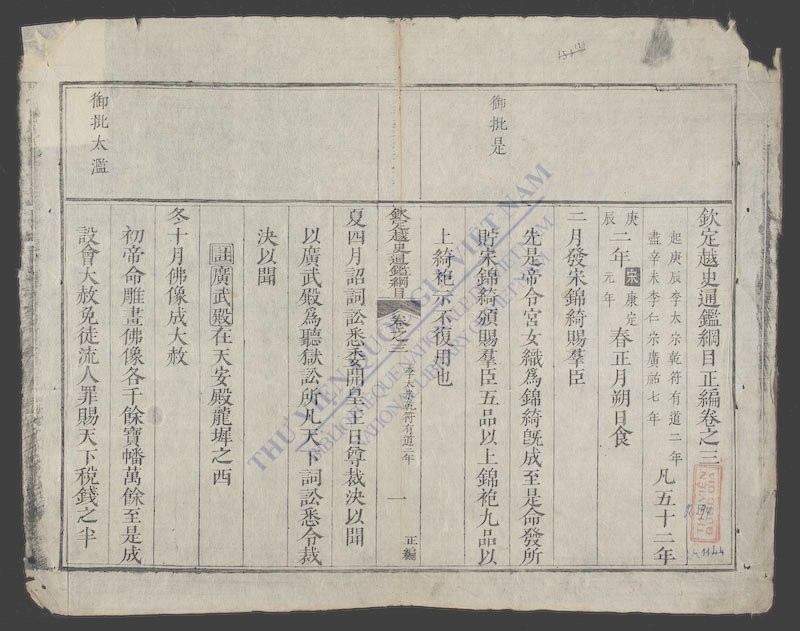 欽定越史通鑑綱目正編卷之三
起庚辰李太宗乾符有道二年
盡辛未李仁宗廣祐七年
凡五十二年
庚辰二年
宋康定元年
春正月朔日食
御批是
二月發宋錦綺賜羣臣
先是帝令宮女織爲錦綺旣成至是命發所
貯宋錦綺頒賜羣臣五品以上錦袍九品以
上綺袍示不復用也
欽定越史通鑑綱目
卷之三
李太宗乾符有道二年
一
正編
夏四月詔詞訟悉委開皇王日尊裁決以聞
以廣武殿爲聽獄訟所凡天下詞訟悉令裁
決以聞
註廣武殿在天安殿龍墀之西
御批太濫
冬十月佛像成大赦
初帝命雕畫佛像各千餘寶幡萬餘至是成
設會大赦免徒流人罪賜天下稅錢之半
THƯ VIỆN QUỐC GIA VIỆT NAM
BIBLIOTHEQUE NATIONALE DU VIETNAM
NATIONAL LIBRARY OF VIETNAM
R.594